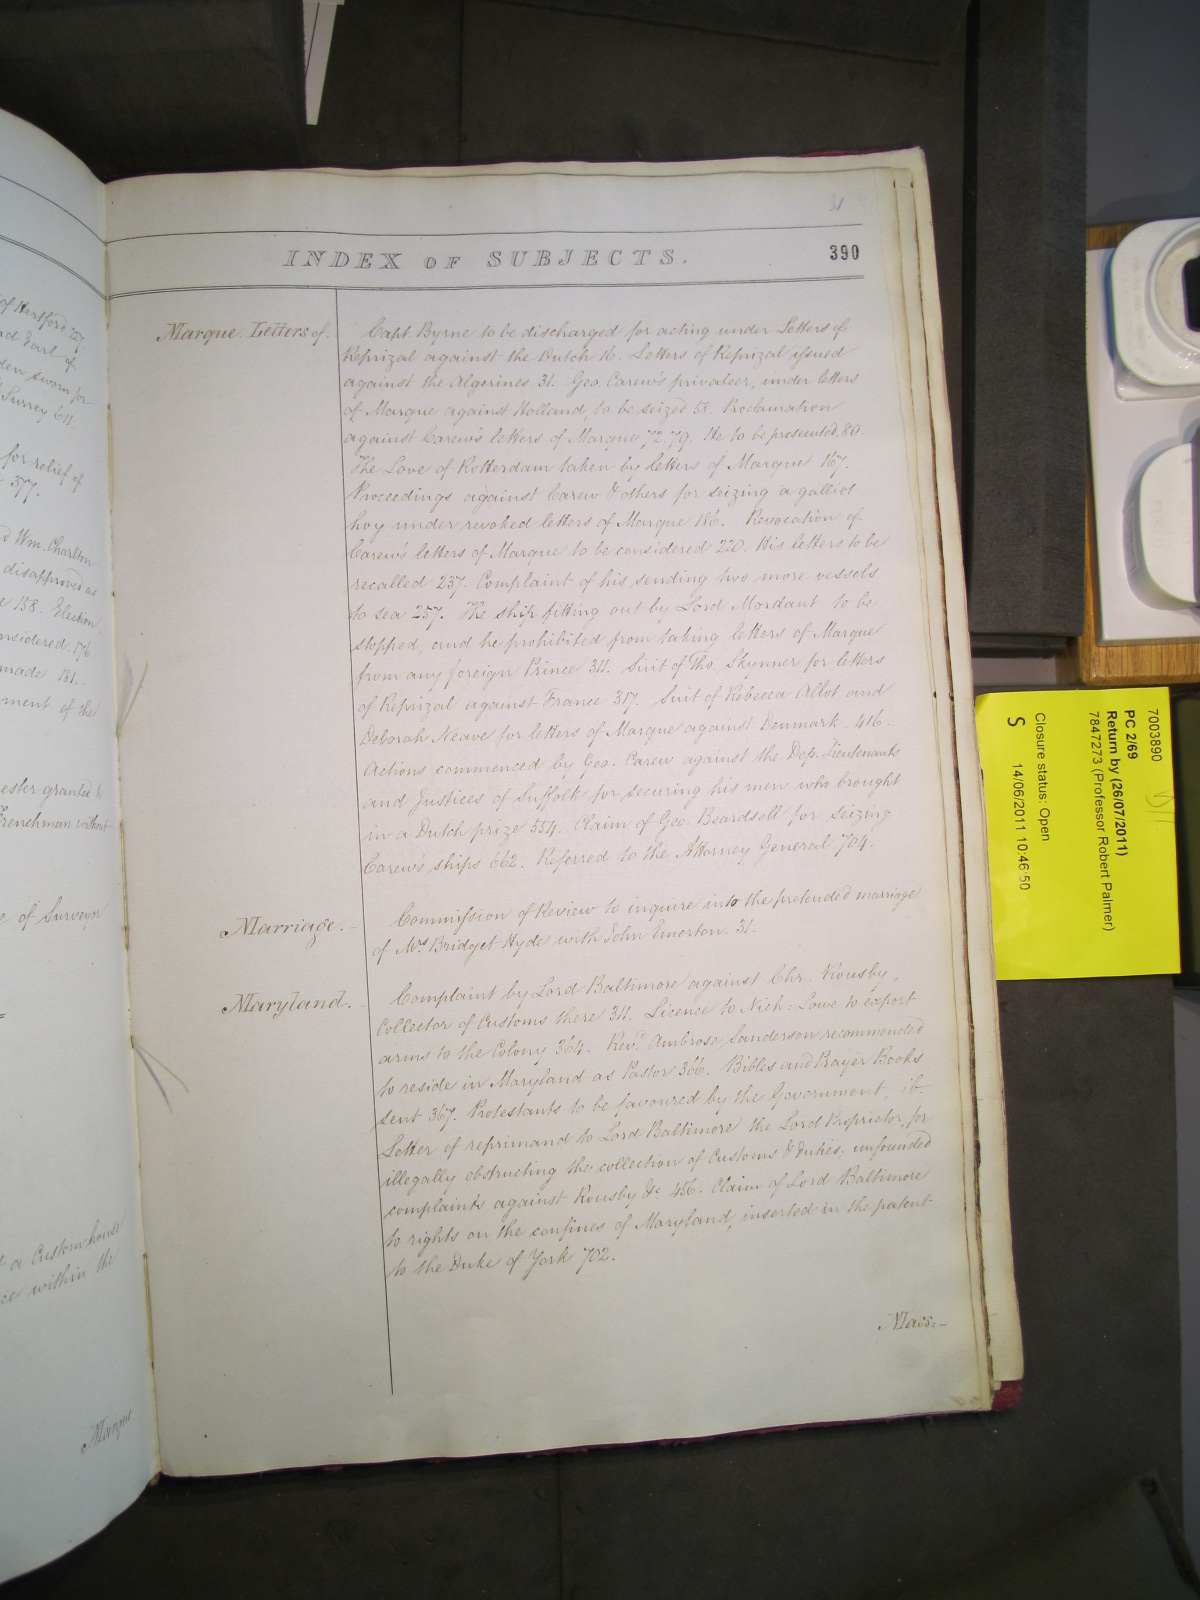 of Hertford 227
and Earl of
den sworn for
Surrey 611.
for relief of
377.
d Wm. Charlton
disapproved as
e 158. Election
nsidered 176
made 181.
ment of the
ester granted to
Frenchman without
e of Surveyor
t a Custom house
ce within the
Marque
31
INDEX OF SUBJECTS. 390
Marque. Letters of. Capt. Byrne to be discharged for acting under Letters of
Reprizal against the Dutch 16. Letters of Reprizal issued
against the Algerines 31. Geo. Carew's privateer, under letters
of Marque against Holland, to be seized 58. Proclamation
against Carew's letters of Marque 72.79. He to be prosecuted 80.
The Love of Rotterdam taken by letters of Marque 167.
Proceedings against Carew & others for seizing a galliot
hoy under revoked letters of Marque 186. Revocation of
Carew's letters of Marque to be considered 220. His letters to be
recalled 237. Complaint of his sending two more vessels
to sea 257. The ship fitting out by Lord Mordant to be
stopped, and he prohibited from taking letters of Marque
from any foreign Prince 311. Suit of Tho. Skynner for letters
of Reprizal against France 317. Suit of Rebecca Allot and
Deborah Neave for letters of Marque against Denmark. 416.
Actions commenced by Geo. Carew against the Dep. Lieutenants
and Justices of Suffolk for securing his men who brought
in a Dutch prize 554. Claim of Geo. Beardsell for seizing
Carew's ships 662. Referred to the Attorney General 704.
Marriage.- Commission of Review to inquire into the pretended marriage
of Mrs Bridget Hyde with John Emerton. 31.
Maryland.- Complaint by Lord Baltimore against Chr. Rousby,
Collector of Customs there 311. Licence to Nich: Lowe to export
arms to the Colony 364. Revd. Ambrose Sanderson recommended
to reside in Maryland as Pastor 366. Bibles and Prayer Books
sent 367. Protestants to be favoured by the Government, ib
Letter of reprimand to Lord Baltimore the Lord Proprietor, for
illegally obstructing the collection of Customs & Duties; unfounded
complaints against Rousby &c 456. Claim of Lord Baltimore
to rights on the confines of Maryland, inserted in the patent
to the Duke of York 702.
Mass:-
7003890
PC 2/69
Return by (26/07/2011)
7847273 (Professor Robert Palmer)
Closure status: Open
S 14/06/2011 10:46:50